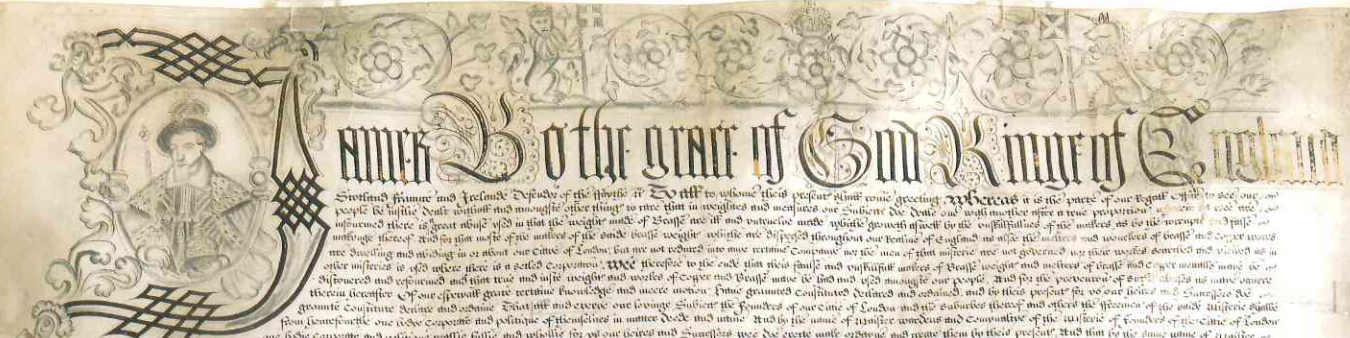 James By the grace of God Kinge of England
Scotland Fraunce and Irelande Defendor of the ffaythe &c To all to whome theis present shall come greeting Whereas it is the parte of our Regall Office to see our
people be iustlie dealt withall and amongste other thing to care that in weightes and measures our Subiect doe deale one with another after a true proportion
informed there is great abuse used in that the weight made of Brasse are ill and untruelie made which groweth aswell by the unskilfulnes of the makers as by the corrupte and false
makinge thereof And for that moste of the makers of the saide brasse weight whiche are dispersed throughout our Realme of England as alsoe the melters and workers of brasse and copper workes
are dwelling and abiding in or about our Cittie of London but are not reduced into anie certaine Companie nor the men of that misterie are not governed nor their workes searched and viewed as in
other misteries is used where there is a setled Corporation Wee therefore to the ende that theis false and unskilfull makers of Brasse weight and melters of brasse and Copper mettalls maie be
discovered and reformed and that true and iuste weight and workes of Copper and Brasse maie be had and used amongste our people And for the prevention of such abuses as maie growe
therein hereafter Of our especiall grace certaine knowledge and meere motion Have graunted Constituted Declared and ordained and by theis present for us our heires and Successors doe
graunte Constitute declare and ordaine That all and everie our lovinge Subiect the Founders of our Cittie of London and the Suburbes thereof and others the ffreemen of the saide Misterie shalbe
from henceforthe one bodye Corporate and politique of themselves in matter deede and name And by the name of Maister wardens and Cominaltie of the Misterie of Founders of the Cittie of London
one bodie Corporate and politique reallie fullie and whollie for us our heires and Successors wee doe erecte make ordayne and create them by theis present And that by the same name of Maister